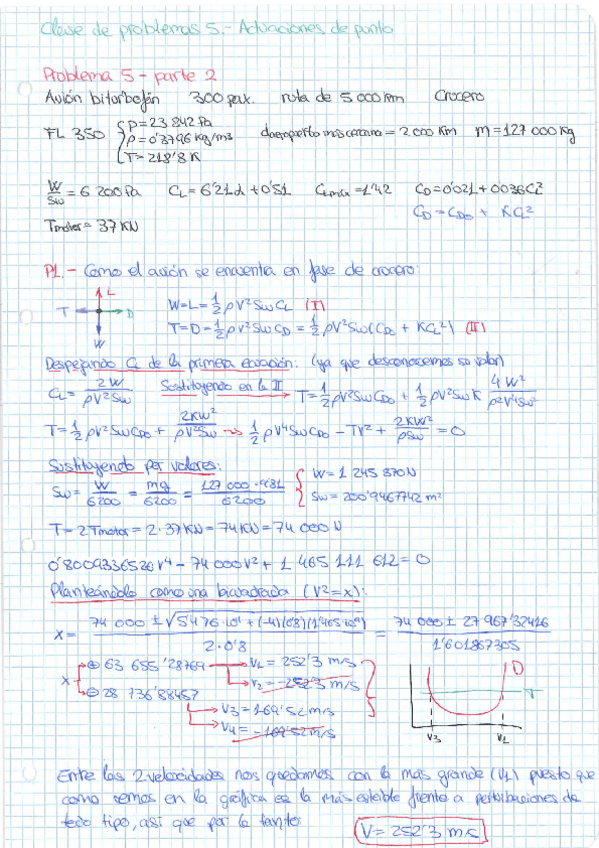 Clase de problemas 5.- Actuaciones de punto
Problema 5 - parte 2
Avión biturbofán 300 pax. ruta de 5000 km Crucero
FL 350 { P = 23 842 Pa
ρ = 0'3796 kg/m3 daeropuerto más cercano = 2000 Km m = 127 000 Kg
T = 218'8 K
W/Sw = 6 200 Pa CL = 6'21α + 0'51 CLmáx = 1'42 CD = 0'021 + 0'036CL²
CD = CD0 + KCL²
Tmotor = 37 KN
P1.- Como el avión se encuentra en fase de crucero:
L
T D
W
W = L = 1/2 ρV²SwCL (I)
T = D = 1/2 ρV²SwCD = 1/2 ρV²Sw(CD0 + KCL²) (II)
Despejando CL de la primera ecuación: (ya que desconocemos su valor)
CL = 2W/ρV²Sw Sustituyendo en la II → T = 1/2 ρV²SwCD0 + 1/2 ρV²Sw K 4W²/ρ²V⁴Sw²
T = 1/2 ρV²SwCD0 + 2KW²/ρV²Sw → 1/2 ρV⁴SwCD0 - TV² + 2KW²/ρSw = 0
Sustituyendo por valores:
Sw = W/6200 = mg/6200 = 127 000 · 9'81/6200 { W = 1 245 870 N
Sw = 200'9467742 m²
T = 2Tmotor = 2·37 KN = 74 KN = 74 000 N
0'8009336526 V⁴ - 74 000 V² + 1 465 111 612 = 0
Planteándolo como una bicuadrada (V² = x):
x = 74 000 ± √5476·10⁶ + (-4)(0'8)(1'465·10⁹) / 2·0'8 = 74 000 ± 27 967'32416 / 1'601867305
x ⊕ 63 655'28769 → V1 = 252'3 m/s
V2 = -252'3 m/s
⊖ 28 736'88457 → V3 = 169'52 m/s
V4 = -169'52 m/s
D
T
V3 V1
Entre las 2 velocidades nos quedamos con la más grande (V1) puesto que
como vemos en la gráfica es la más estable frente a perturbaciones de
todo tipo, así que por lo tanto:
V = 252'3 m/s